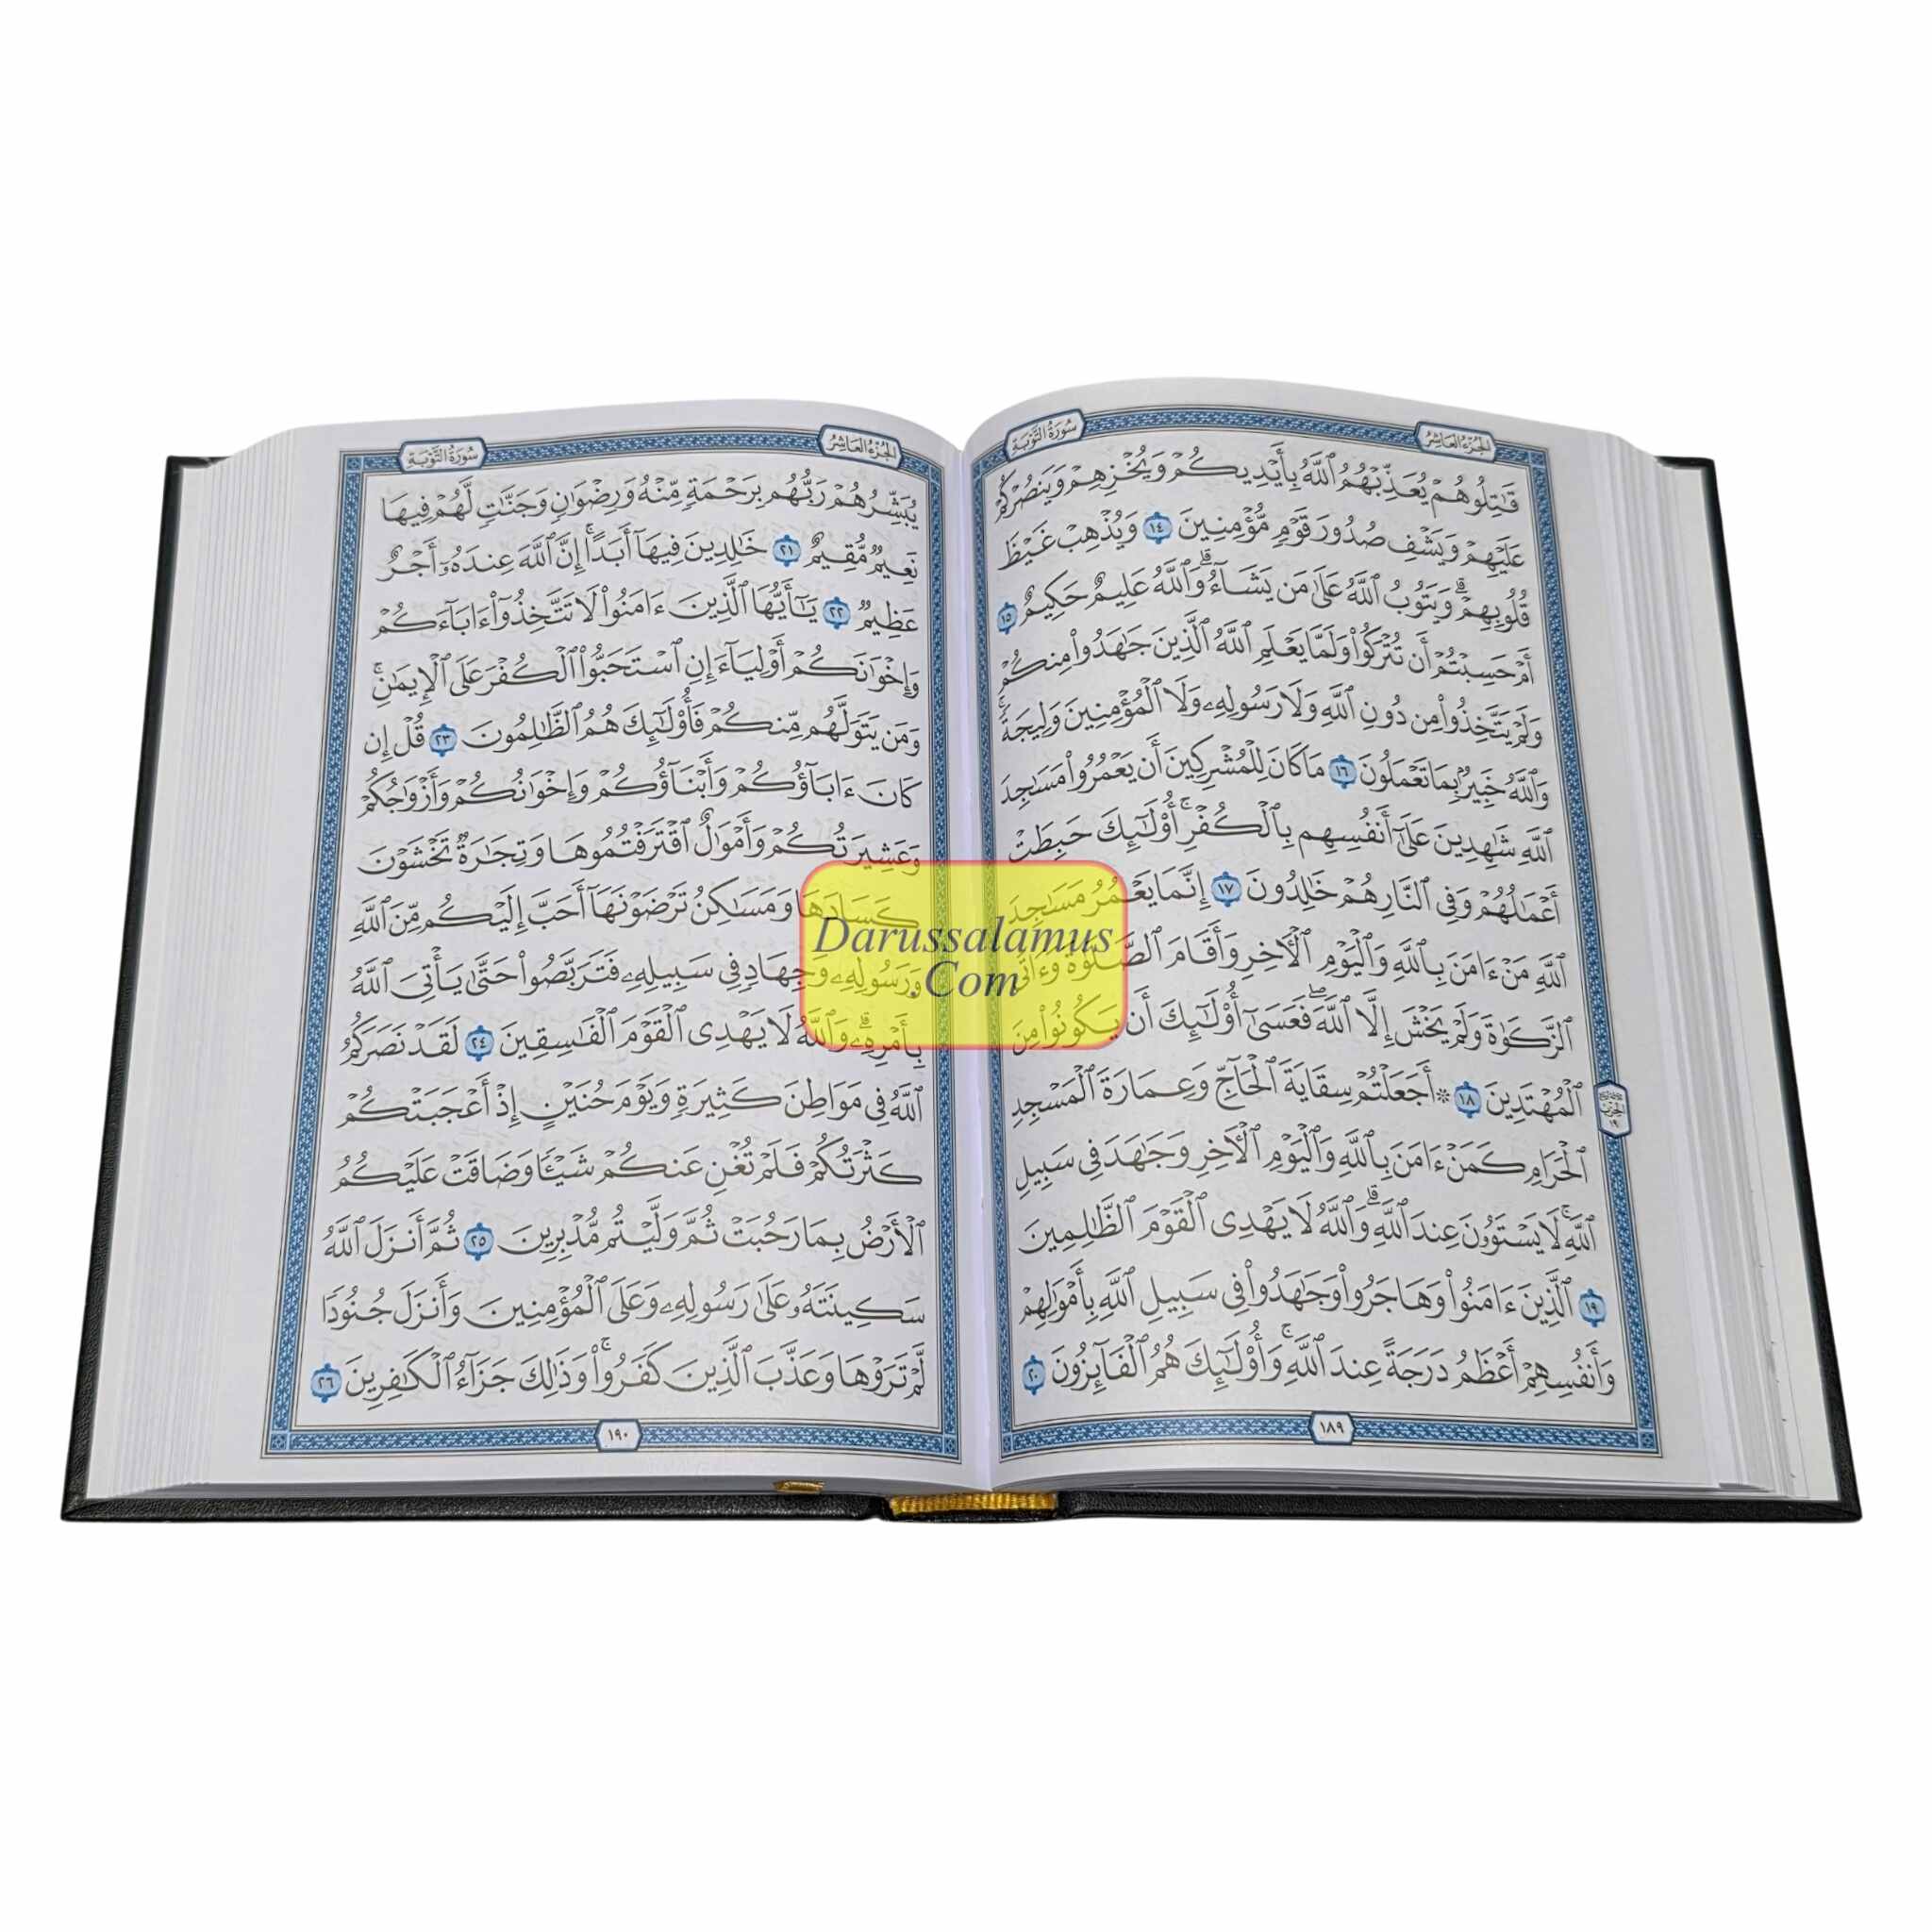 سُورَةُ التَّوْبَةِ
الجُزْءُ العَاشِرُ
قَٰتِلُوهُمْ يُعَذِّبْهُمُ ٱللَّهُ بِأَيْدِيكُمْ وَيُخْزِهِمْ وَيَنصُرْكُمْ
عَلَيْهِمْ وَيَشْفِ صُدُورَ قَوْمٍ مُّؤْمِنِينَ ١٤ وَيُذْهِبْ غَيْظَ
قُلُوبِهِمْ ۗ وَيَتُوبُ ٱللَّهُ عَلَىٰ مَن يَشَآءُ ۗ وَٱللَّهُ عَلِيمٌ حَكِيمٌ ١٥
أَمْ حَسِبْتُمْ أَن تُتْرَكُوا۟ وَلَمَّا يَعْلَمِ ٱللَّهُ ٱلَّذِينَ جَٰهَدُوا۟ مِنكُمْ
وَلَمْ يَتَّخِذُوا۟ مِن دُونِ ٱللَّهِ وَلَا رَسُولِهِۦ وَلَا ٱلْمُؤْمِنِينَ وَلِيجَةً ۚ
وَٱللَّهُ خَبِيرٌۢ بِمَا تَعْمَلُونَ ١٦ مَا كَانَ لِلْمُشْرِكِينَ أَن يَعْمُرُوا۟ مَسَٰجِدَ
ٱللَّهِ شَٰهِدِينَ عَلَىٰٓ أَنفُسِهِم بِٱلْكُفْرِ ۚ أُو۟لَٰٓئِكَ حَبِطَتْ
أَعْمَٰلُهُمْ وَفِى ٱلنَّارِ هُمْ خَٰلِدُونَ ١٧ إِنَّمَا يَعْمُرُ مَسَٰجِدَ
ٱللَّهِ مَنْ ءَامَنَ بِٱللَّهِ وَٱلْيَوْمِ ٱلْءَاخِرِ وَأَقَامَ ٱلصَّلَوٰةَ وَءَاتَى
ٱلزَّكَوٰةَ وَلَمْ يَخْشَ إِلَّا ٱللَّهَ ۖ فَعَسَىٰٓ أُو۟لَٰٓئِكَ أَن يَكُونُوا۟ مِنَ
ٱلْمُهْتَدِينَ ١٨ ۞ أَجَعَلْتُمْ سِقَايَةَ ٱلْحَآجِّ وَعِمَارَةَ ٱلْمَسْجِدِ
ٱلْحَرَامِ كَمَنْ ءَامَنَ بِٱللَّهِ وَٱلْيَوْمِ ٱلْءَاخِرِ وَجَٰهَدَ فِى سَبِيلِ
ٱللَّهِ ۚ لَا يَسْتَوُۥنَ عِندَ ٱللَّهِ ۗ وَٱللَّهُ لَا يَهْدِى ٱلْقَوْمَ ٱلظَّٰلِمِينَ
١٩ ٱلَّذِينَ ءَامَنُوا۟ وَهَاجَرُوا۟ وَجَٰهَدُوا۟ فِى سَبِيلِ ٱللَّهِ بِأَمْوَٰلِهِمْ
وَأَنفُسِهِمْ أَعْظَمُ دَرَجَةً عِندَ ٱللَّهِ ۚ وَأُو۟لَٰٓئِكَ هُمُ ٱلْفَآئِزُونَ ٢٠
الحِزْب
١٩
١٨٩
سُورَةُ التَّوْبَةِ
الجُزْءُ العَاشِرُ
يُبَشِّرُهُمْ رَبُّهُم بِرَحْمَةٍ مِّنْهُ وَرِضْوَٰنٍ وَجَنَّٰتٍ لَّهُمْ فِيهَا
نَعِيمٌ مُّقِيمٌ ٢١ خَٰلِدِينَ فِيهَآ أَبَدًا ۚ إِنَّ ٱللَّهَ عِندَهُۥٓ أَجْرٌ
عَظِيمٌ ٢٢ يَٰٓأَيُّهَا ٱلَّذِينَ ءَامَنُوا۟ لَا تَتَّخِذُوٓا۟ ءَابَآءَكُمْ
وَإِخْوَٰنَكُمْ أَوْلِيَآءَ إِنِ ٱسْتَحَبُّوا۟ ٱلْكُفْرَ عَلَى ٱلْإِيمَٰنِ ۚ
وَمَن يَتَوَلَّهُم مِّنكُمْ فَأُو۟لَٰٓئِكَ هُمُ ٱلظَّٰلِمُونَ ٢٣ قُلْ إِن
كَانَ ءَابَآؤُكُمْ وَأَبْنَآؤُكُمْ وَإِخْوَٰنُكُمْ وَأَزْوَٰجُكُمْ
وَعَشِيرَتُكُمْ وَأَمْوَٰلٌ ٱقْتَرَفْتُمُوهَا وَتِجَٰرَةٌ تَخْشَوْنَ
كَسَادَهَا وَمَسَٰكِنُ تَرْضَوْنَهَآ أَحَبَّ إِلَيْكُم مِّنَ ٱللَّهِ
وَرَسُولِهِۦ وَجِهَادٍ فِى سَبِيلِهِۦ فَتَرَبَّصُوا۟ حَتَّىٰ يَأْتِىَ ٱللَّهُ
بِأَمْرِهِۦ ۗ وَٱللَّهُ لَا يَهْدِى ٱلْقَوْمَ ٱلْفَٰسِقِينَ ٢٤ لَقَدْ نَصَرَكُمُ
ٱللَّهُ فِى مَوَاطِنَ كَثِيرَةٍ وَيَوْمَ حُنَيْنٍ إِذْ أَعْجَبَتْكُمْ
كَثْرَتُكُمْ فَلَمْ تُغْنِ عَنكُمْ شَيْـًٔا وَضَاقَتْ عَلَيْكُمُ
ٱلْأَرْضُ بِمَا رَحُبَتْ ثُمَّ وَلَّيْتُم مُّدْبِرِينَ ٢٥ ثُمَّ أَنزَلَ ٱللَّهُ
سَكِينَتَهُۥ عَلَىٰ رَسُولِهِۦ وَعَلَى ٱلْمُؤْمِنِينَ وَأَنزَلَ جُنُودًا
لَّمْ تَرَوْهَا وَعَذَّبَ ٱلَّذِينَ كَفَرُوا۟ ۚ وَذَٰلِكَ جَزَآءُ ٱلْكَٰفِرِينَ ٢٦
١٩٠
Darussalamus
.Com